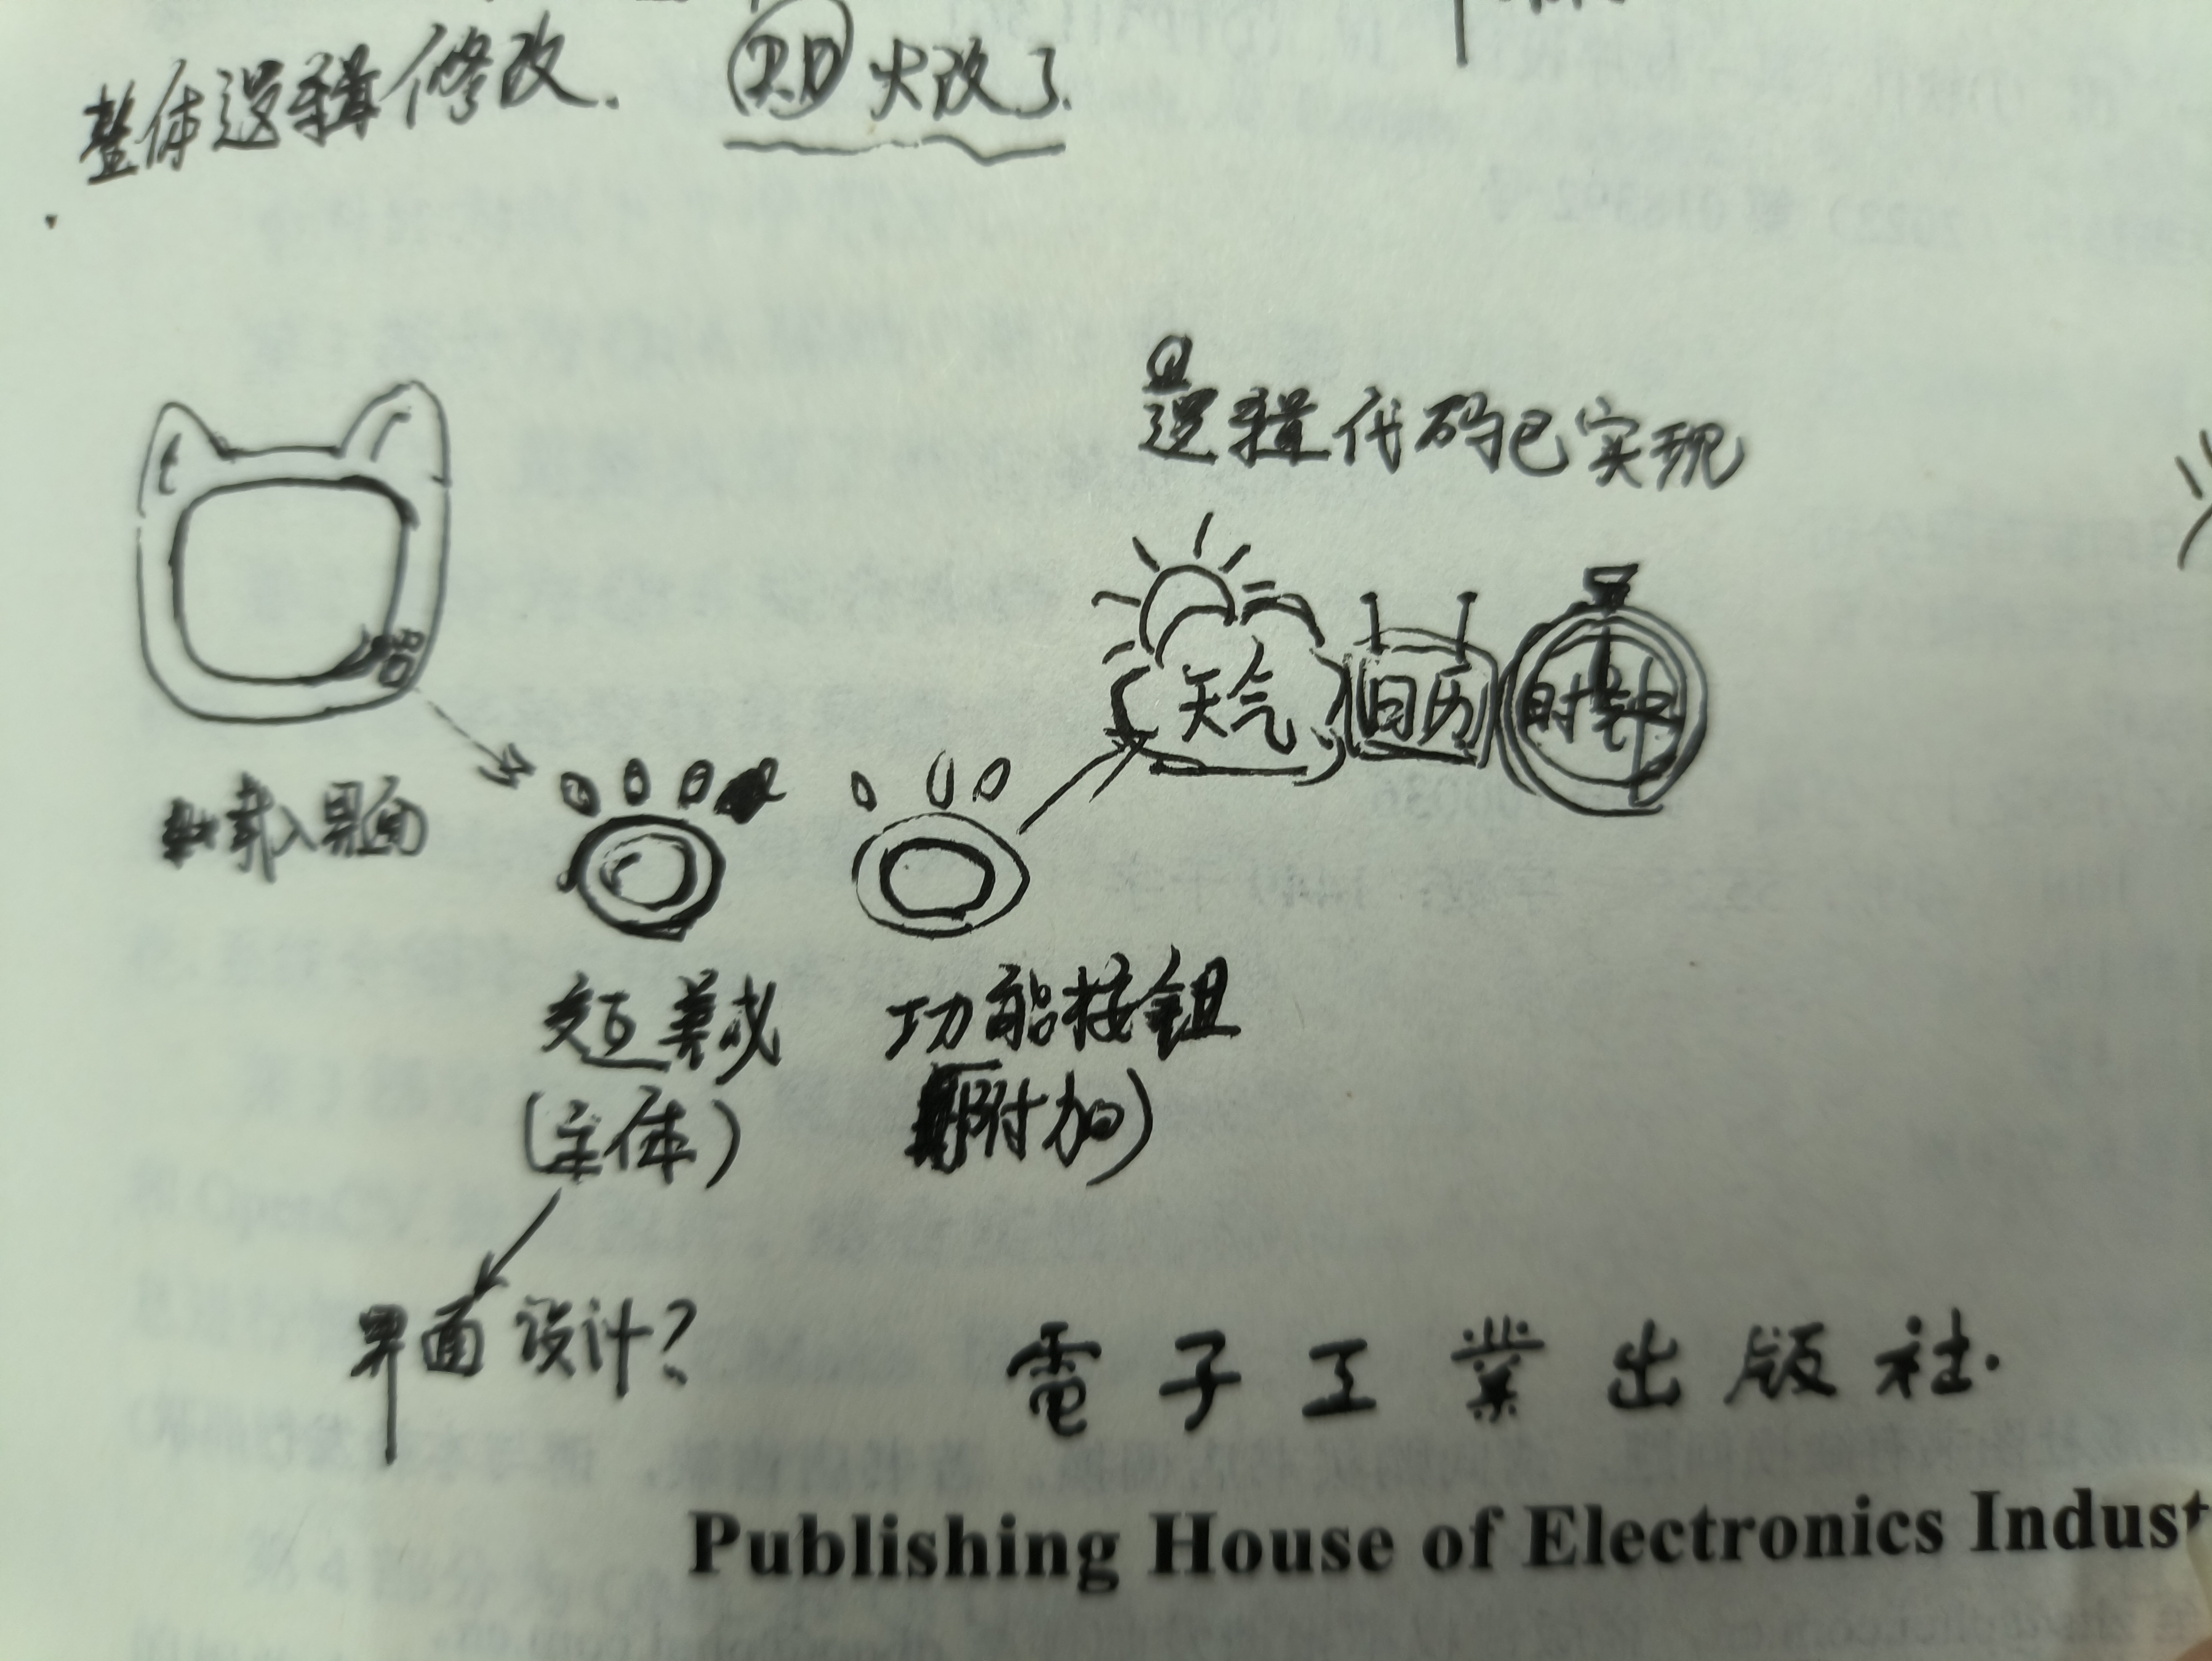 整体逻辑修改.
火改了.
逻辑代码已实现
天气 日历 时钟
载入界面
交互模式 功能按钮
(主体) 附加)
界面设计?
電子工業出版社.
Publishing House of Electronics Indust